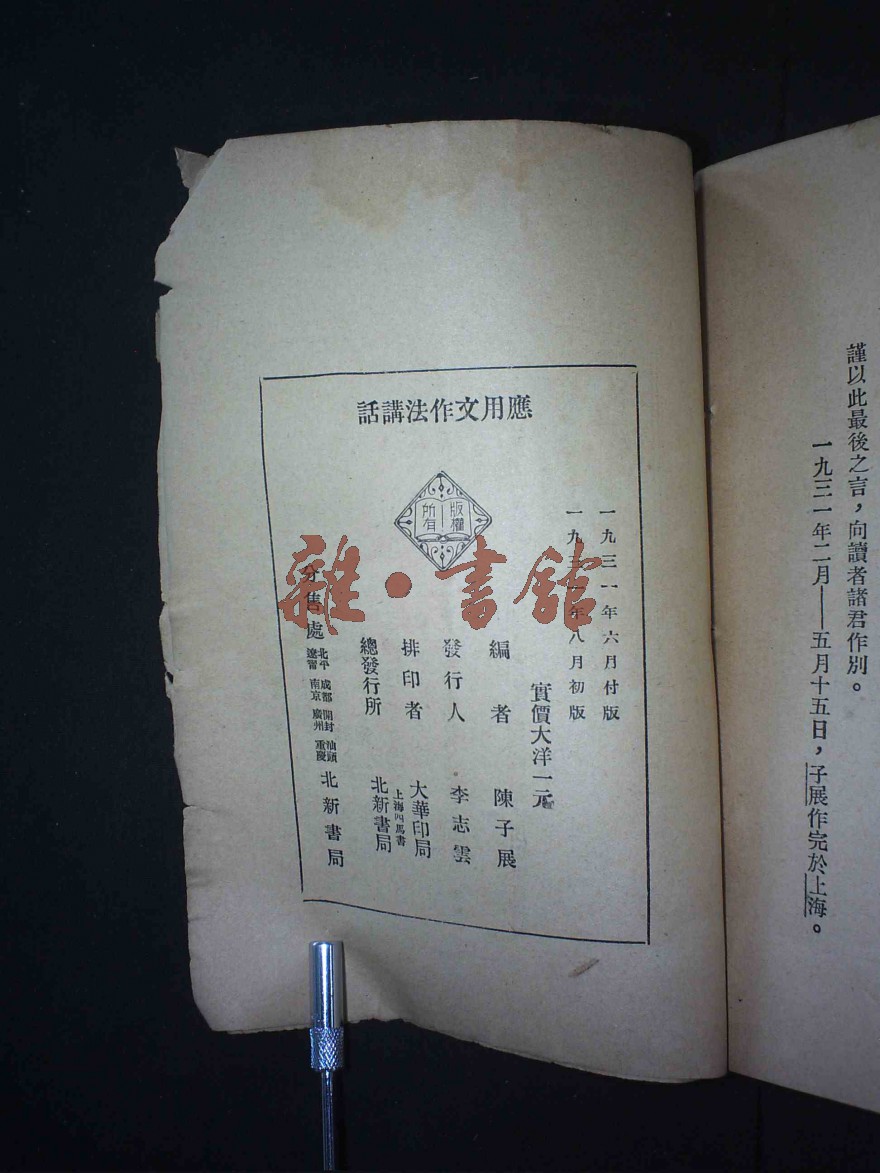 謹以此最後之言，向讀者諸君作別。
一九三一年二月——五月十五日，子展作完於上海。
應用文作法講話
版權
所有
一九三一年六月付版
一九三一年八月初版
實價大洋一元
編者　陳子展
發行人　李志雲
排印者　大華印局
總發行所　上海四馬書
北新書局
分售處　北平　成都　開封　汕頭
遼甯　南京　廣州　重慶
北新書局
雜·書館